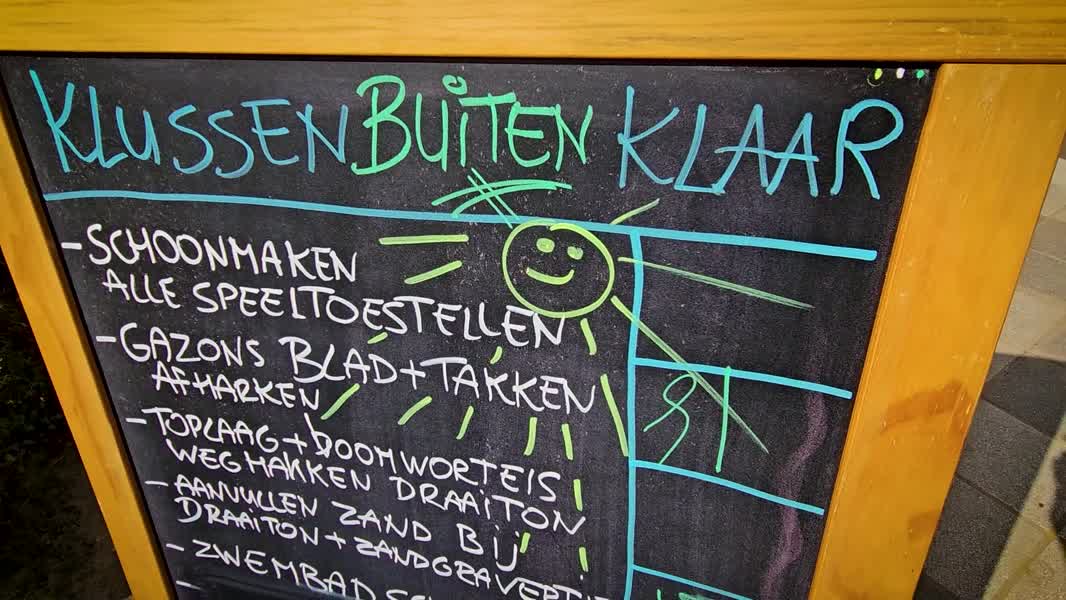 KLUSSEN BUITEN KLAAR
- SCHOONMAKEN
ALLE SPEELTOESTELLEN
- GAZONS BLAD + TAKKEN
AFHARKEN
- TOPLAAG + BOOMWORTELS
WEGHAKKEN DRAAITON
- AANVULLEN ZAND BIJ
DRAAITON + ZANDGRAVERTJE
- ZWEMBAD